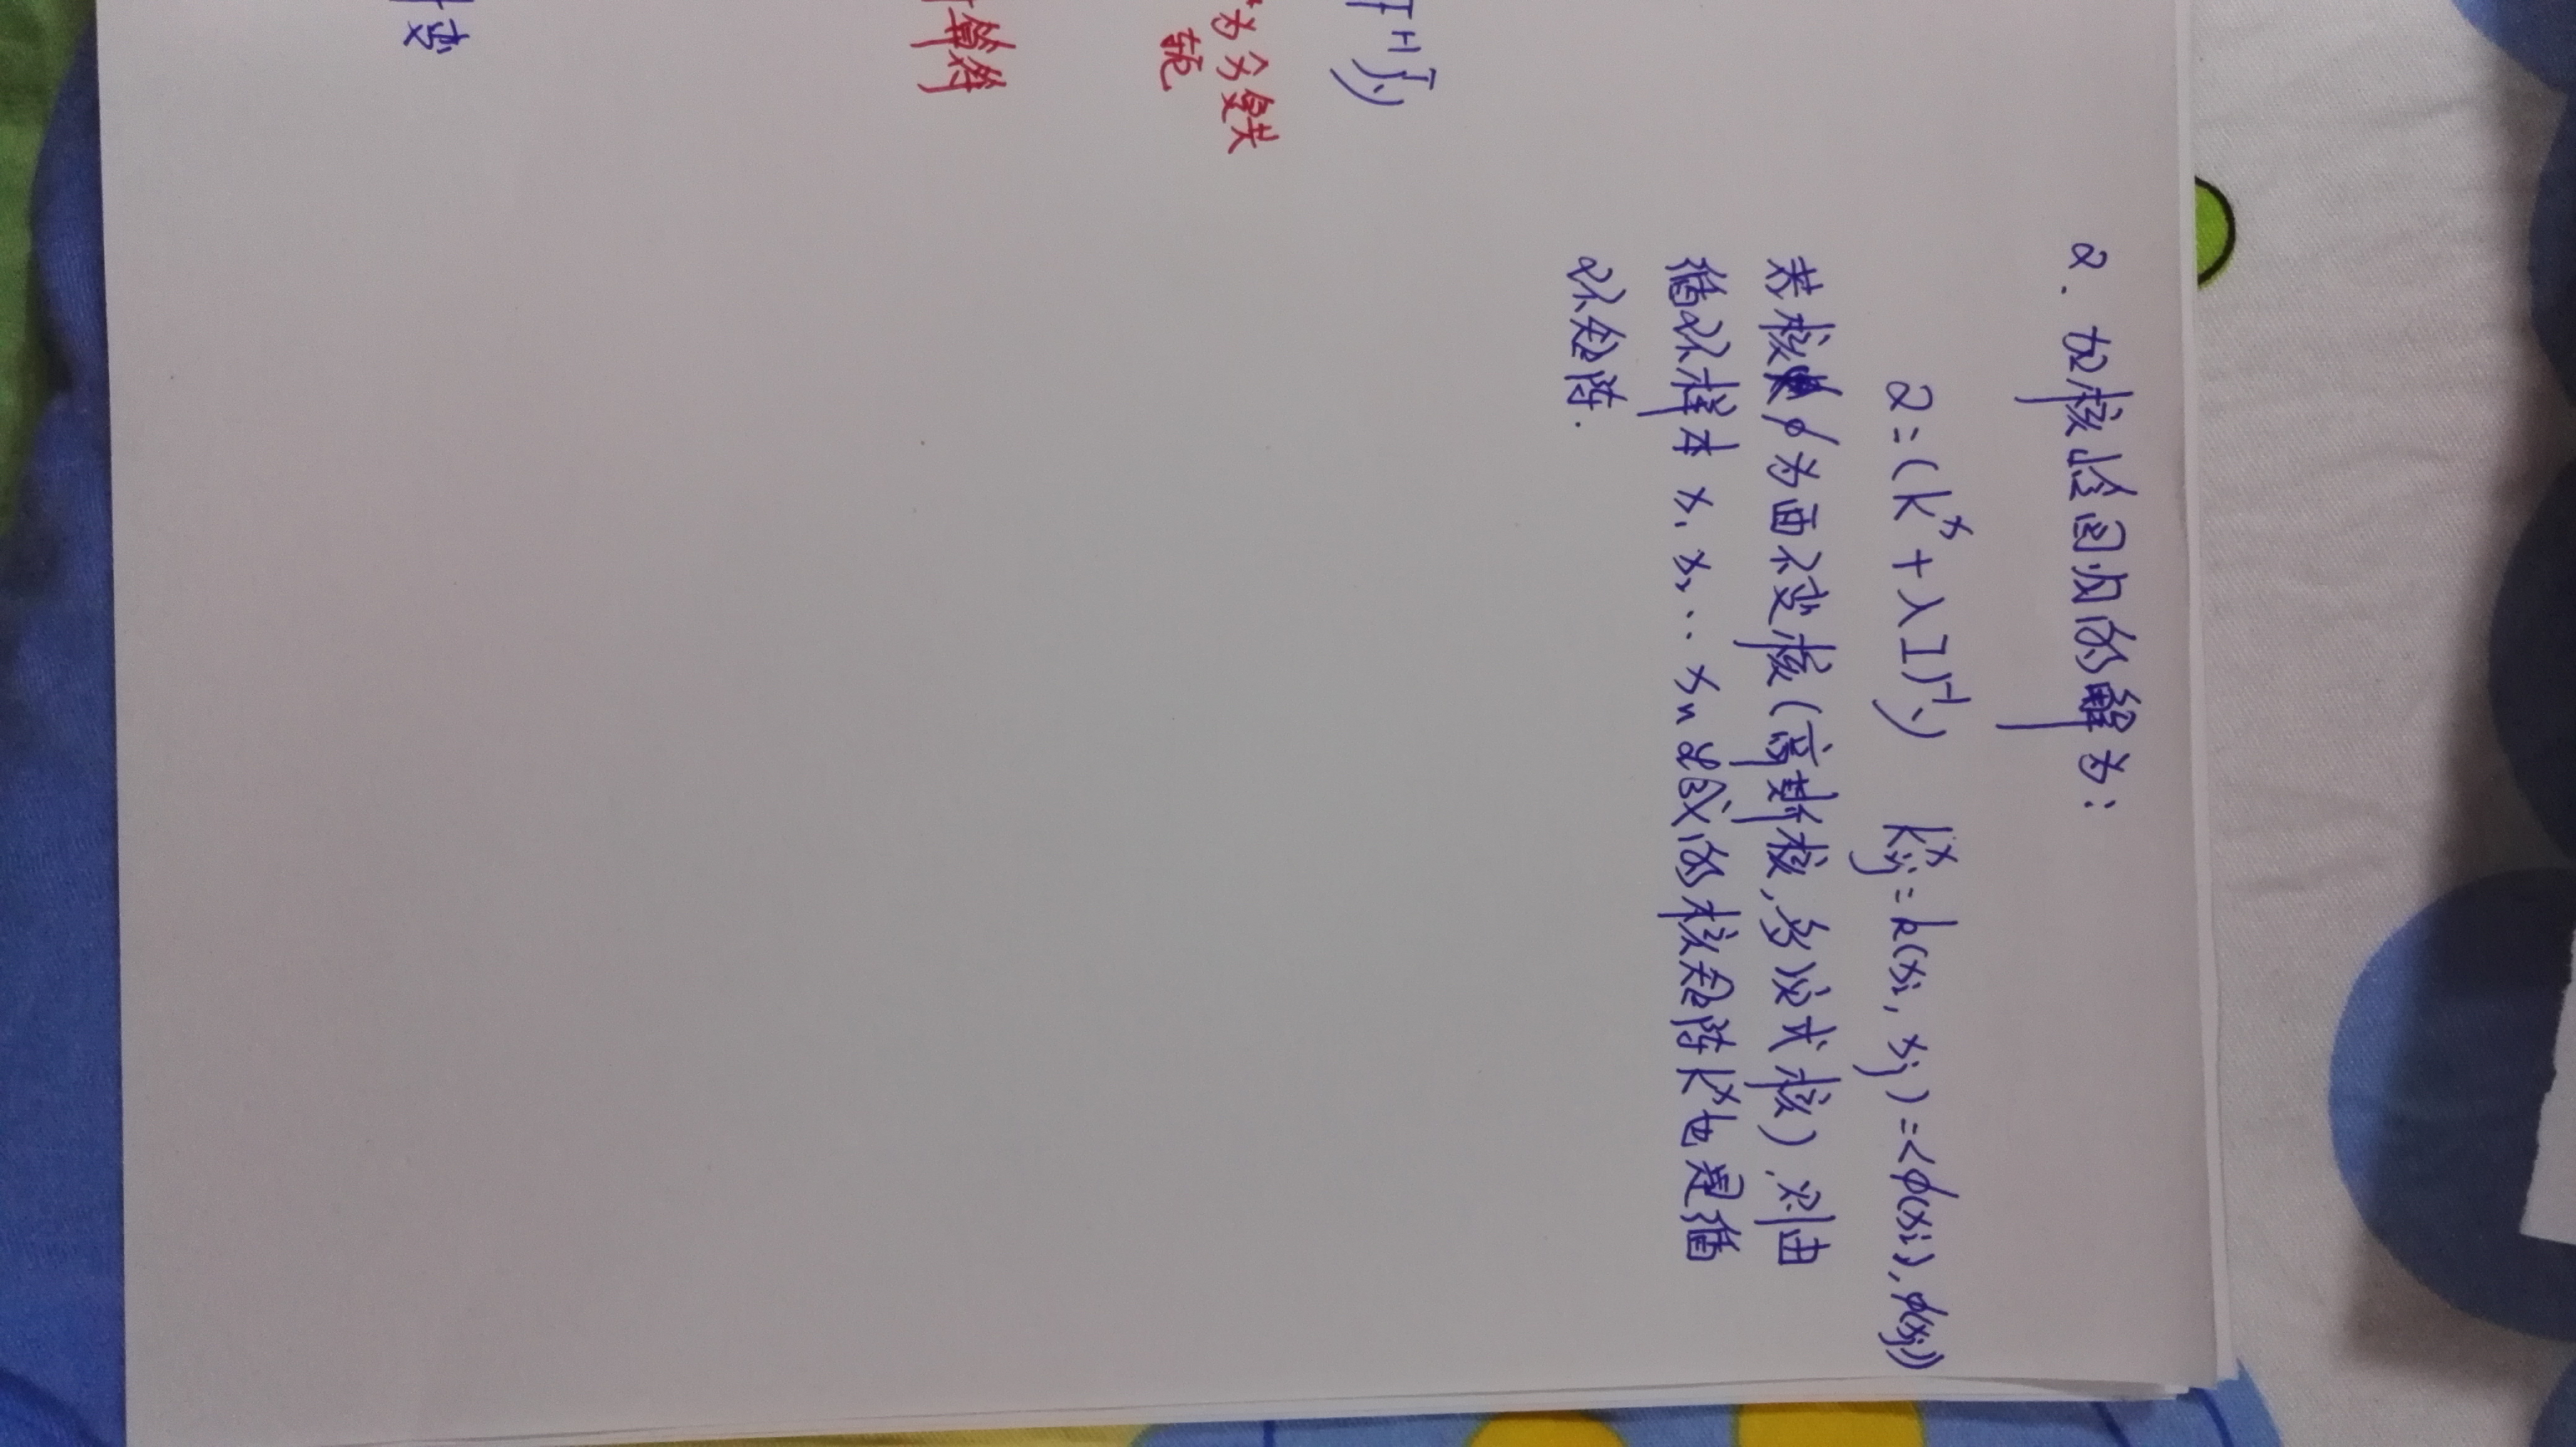 2. 加核岭回归的解为:
α=(K^x+λI)^{-1}y K^x_{ij}=k(xi, xj)=<φ(xi),φ(xj)>
若核φ为酉不变核(高斯核,多项式核).则由
循环样本 x₁ x₂... xn 的核矩阵K^x也是循
环矩阵.
+λI)^{-1}y
为分复共
轭
算符
变